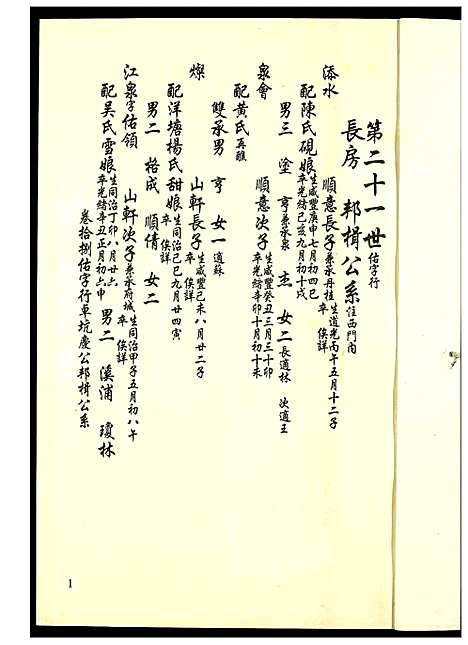 第二十一世 佑字行
長房 邦楫公系 住西門內
添水 順意長子兼承丹桂 生道光丙午五月十二子 卒 俟詳
配陳氏硯娘 生咸豐庚申七月初四巳 卒光緒己亥九月初十戌
男三 塗 亨兼承泉 杰 女二 長適林 次適王
泉會 順意次子 生咸豐癸丑三月三十卯 卒光緒辛卯十月初十未
配黃氏 再醮
雙承男 亨 女一 適蘇
燦 山軒長子 生咸豐己未八月廿二子 卒 俟詳
配洋塘楊氏甜娘 生同治己巳九月廿四寅 卒 俟詳
男二 格成 順倩 女二
江泉字佑領 山軒次子兼承府城 生同治甲子五月初八午 卒 俟詳
配吳氏雪娘 生同治丁卯八月廿六 卒光緒辛丑正月初六申 男二 溪浦 瓊林
卷拾捌佑字行車坑慶公邦楫公系
1